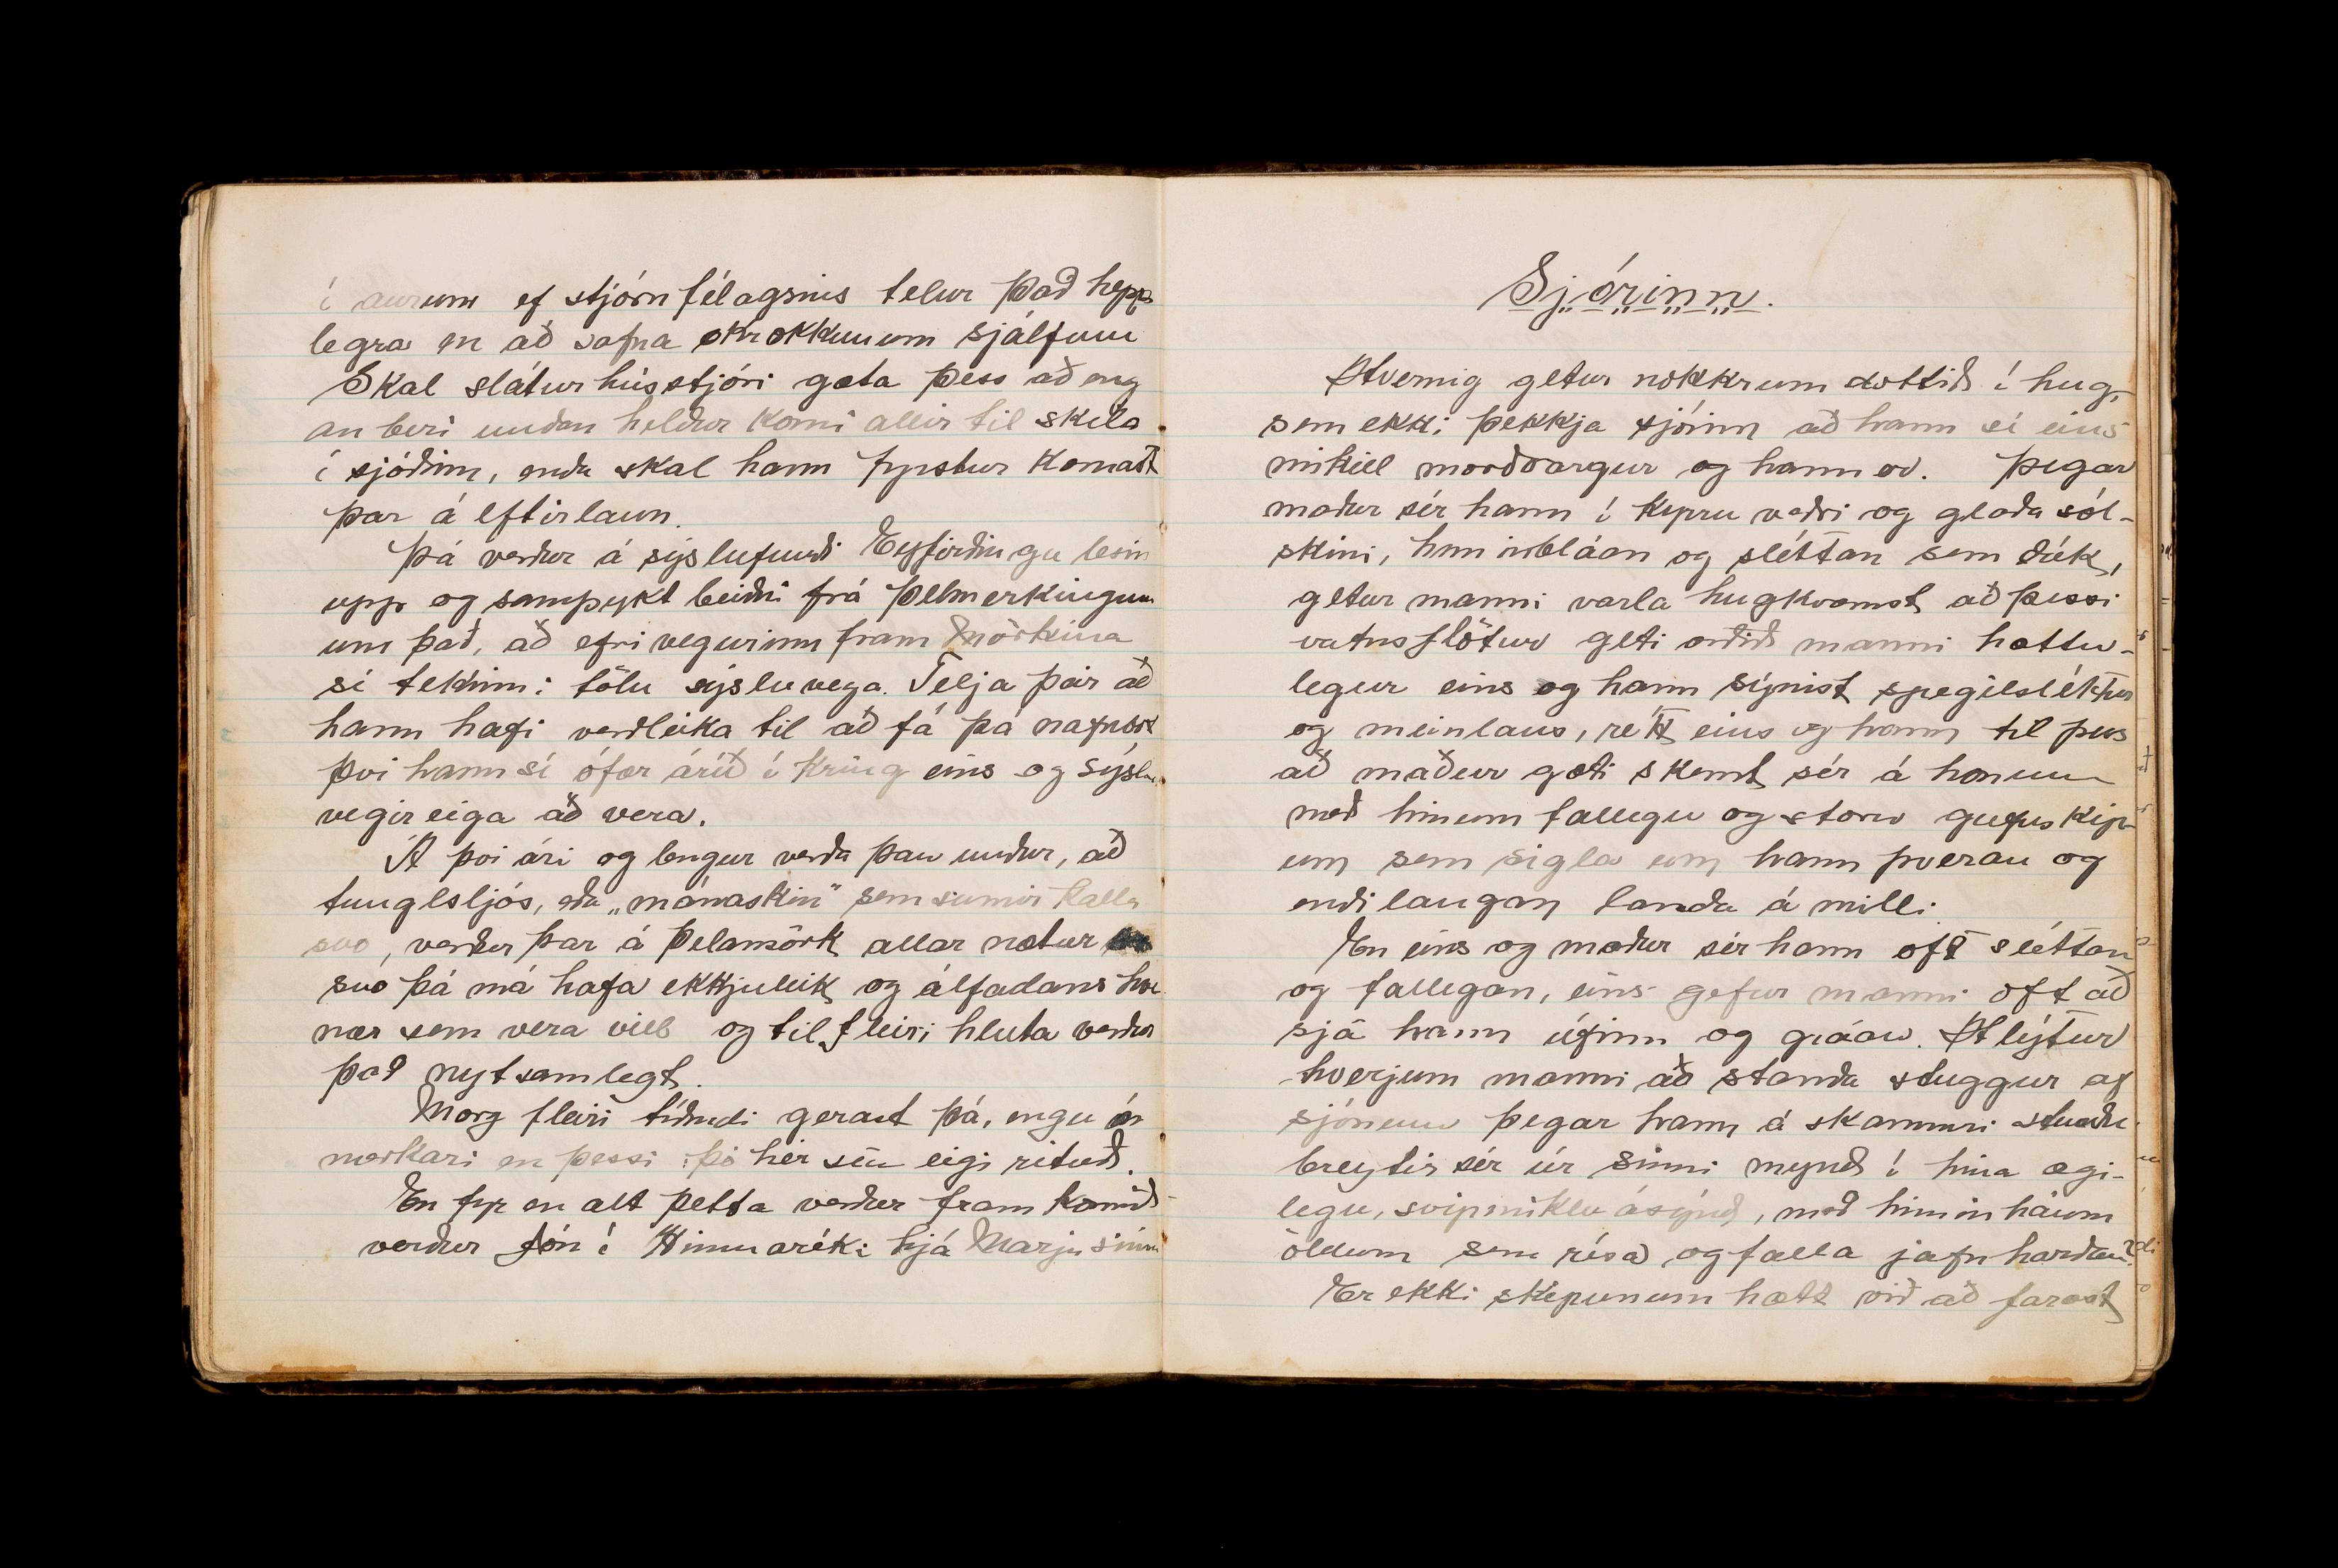 í aurum ef stjórn félagsins telur það hepp
legra en að safna skrokkunum sjálfum
Skal sláturhússtjóri gæta þess að eng
an beri undan heldur komi allir til skila
í sjóðinn, enda skal hann fyrstur komast
þar á eftirlaun.
Þá verður á sýslufundi Eyfirðinga lesin
upp og samþykt beiðni frá Þelmerkingum
um það, að efri vegurinn fram Mörkina
sé tekinn í tölu sýsluvega. Telja þeir að
hann hafi verðleika til að fá þá nafnbót
því hann sé ófær árið í kring eins og sýslu
vegir eiga að vera.
Á því ári og lengur verða þau undur, að
tunglsljós, eða „mánaskin" sem sumir kalla
svo, verður þar á Þelamörk allar nætur
svo þá má hafa ekkjuleik og álfadans hve
nær sem vera vill og til fleiri hluta verður
það nytsamlegt.
Mörg fleiri tíðindi gerast þá, engu ó
merkari en þessi þó hér séu eigi rituð.
En fyr en alt þetta verður fram komið
verður Jón í Himnaríki hjá Marju sinni
Sjórinn.
Hvernig getur nokkrum dottið í hug,
sem ekki þekkja sjóinn að hann sé eins
mikill morðvargur og hann er. Þegar
maður sér hann í kyrru veðri og glaða sól-
skini, himinbláan og sléttan sem dúk,
getur manni varla hugkvæmst að þessi
vatnsflötur geti orðið manni hættu-
legur eins og hann sýnist spegilsléttur
og meinlaus, rétt eins og hann til þess
að maður gæti skemt sér á honum
með hinum fallegu og stóru gufuskip
um sem sigla um hann þveran og
endilangan landa á milli.
En eins og maður sér hann oft sléttan
og fallegan, eins gefur manni oft að
sjá hann úfinn og gráan. Hlýtur
hverjum manni að standa stuggur af
sjónum þegar hann á skammri stundu
breytir sér úr sinni mynd í hina ægi-
legu, svipmiklu ásýnd, með himinháum
öldum sem rísa og falla jafnharðan?
Er ekki skipunum hætt við að farast